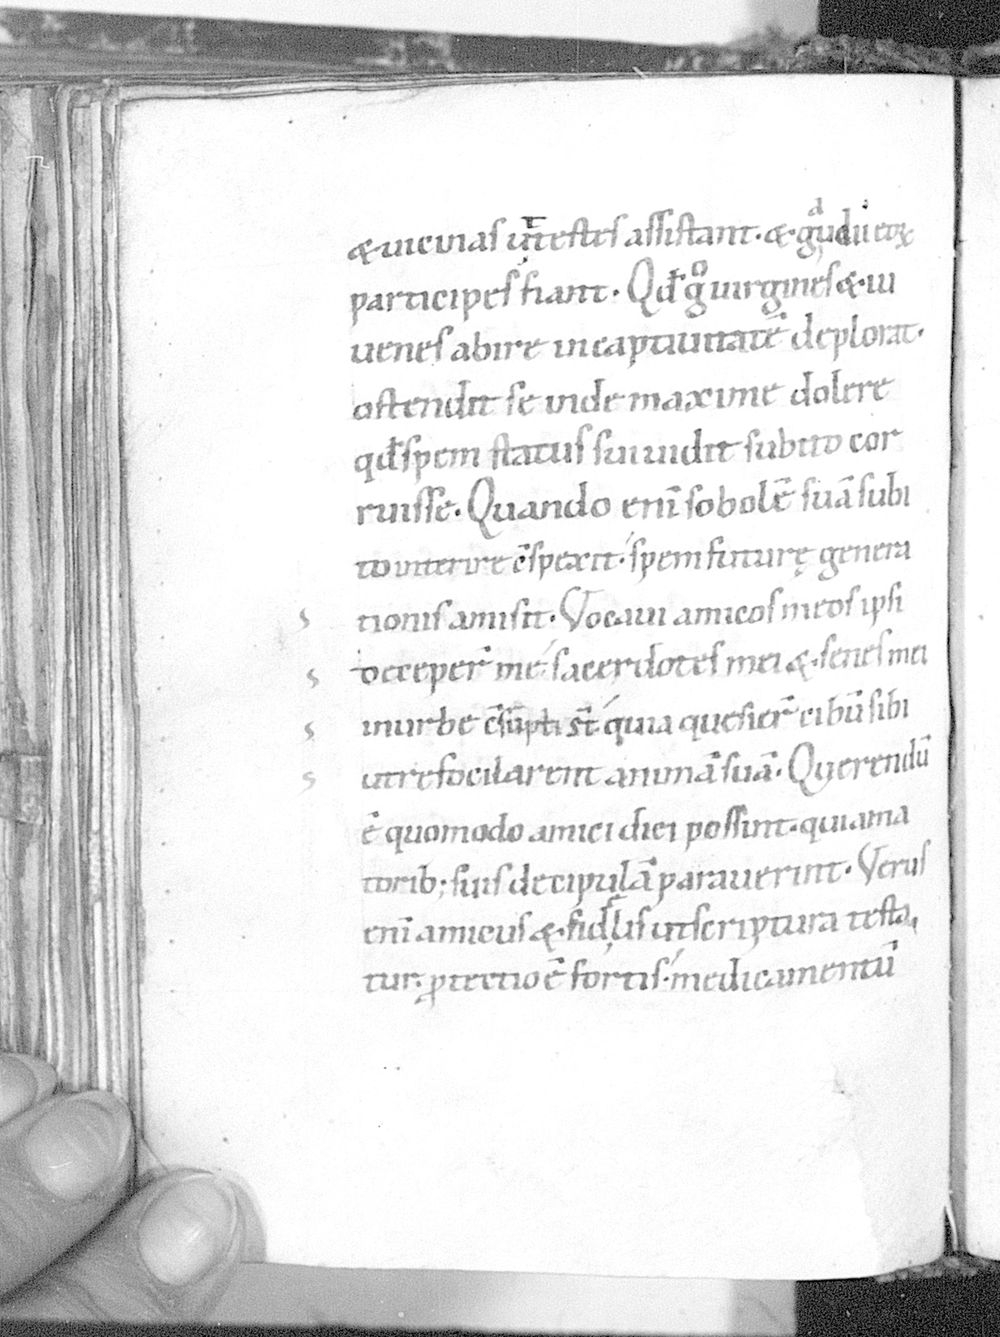 & uicinas int̄estes assistant· & gaudii eoꝝ
participes fiant· Qđ gͦ uirgines & iu
uenes abire incaptiuitatē deplorat·
ostendit se inde maxime dolere
qđ spem status sui uidit subito cor
ruisse· Quando enī sobolē suā subi
to interire c̄spexit· spem futurę genera
tionis amisit· Vocaui amicos meos ipsi
deceper̄ me· sacerdotes mei & senes mei
inurbe c̄sūpti st̄· quia quesier̄ cibū sibi
utrefocilarent animā suā· Querendū
ē quomodo amici dici possint· quiama
torib; suis decipulā parauerint· Verus
enī amicus & fidelis utscriptura testa
tur· ꝓtectio ē fortis· medicamentū